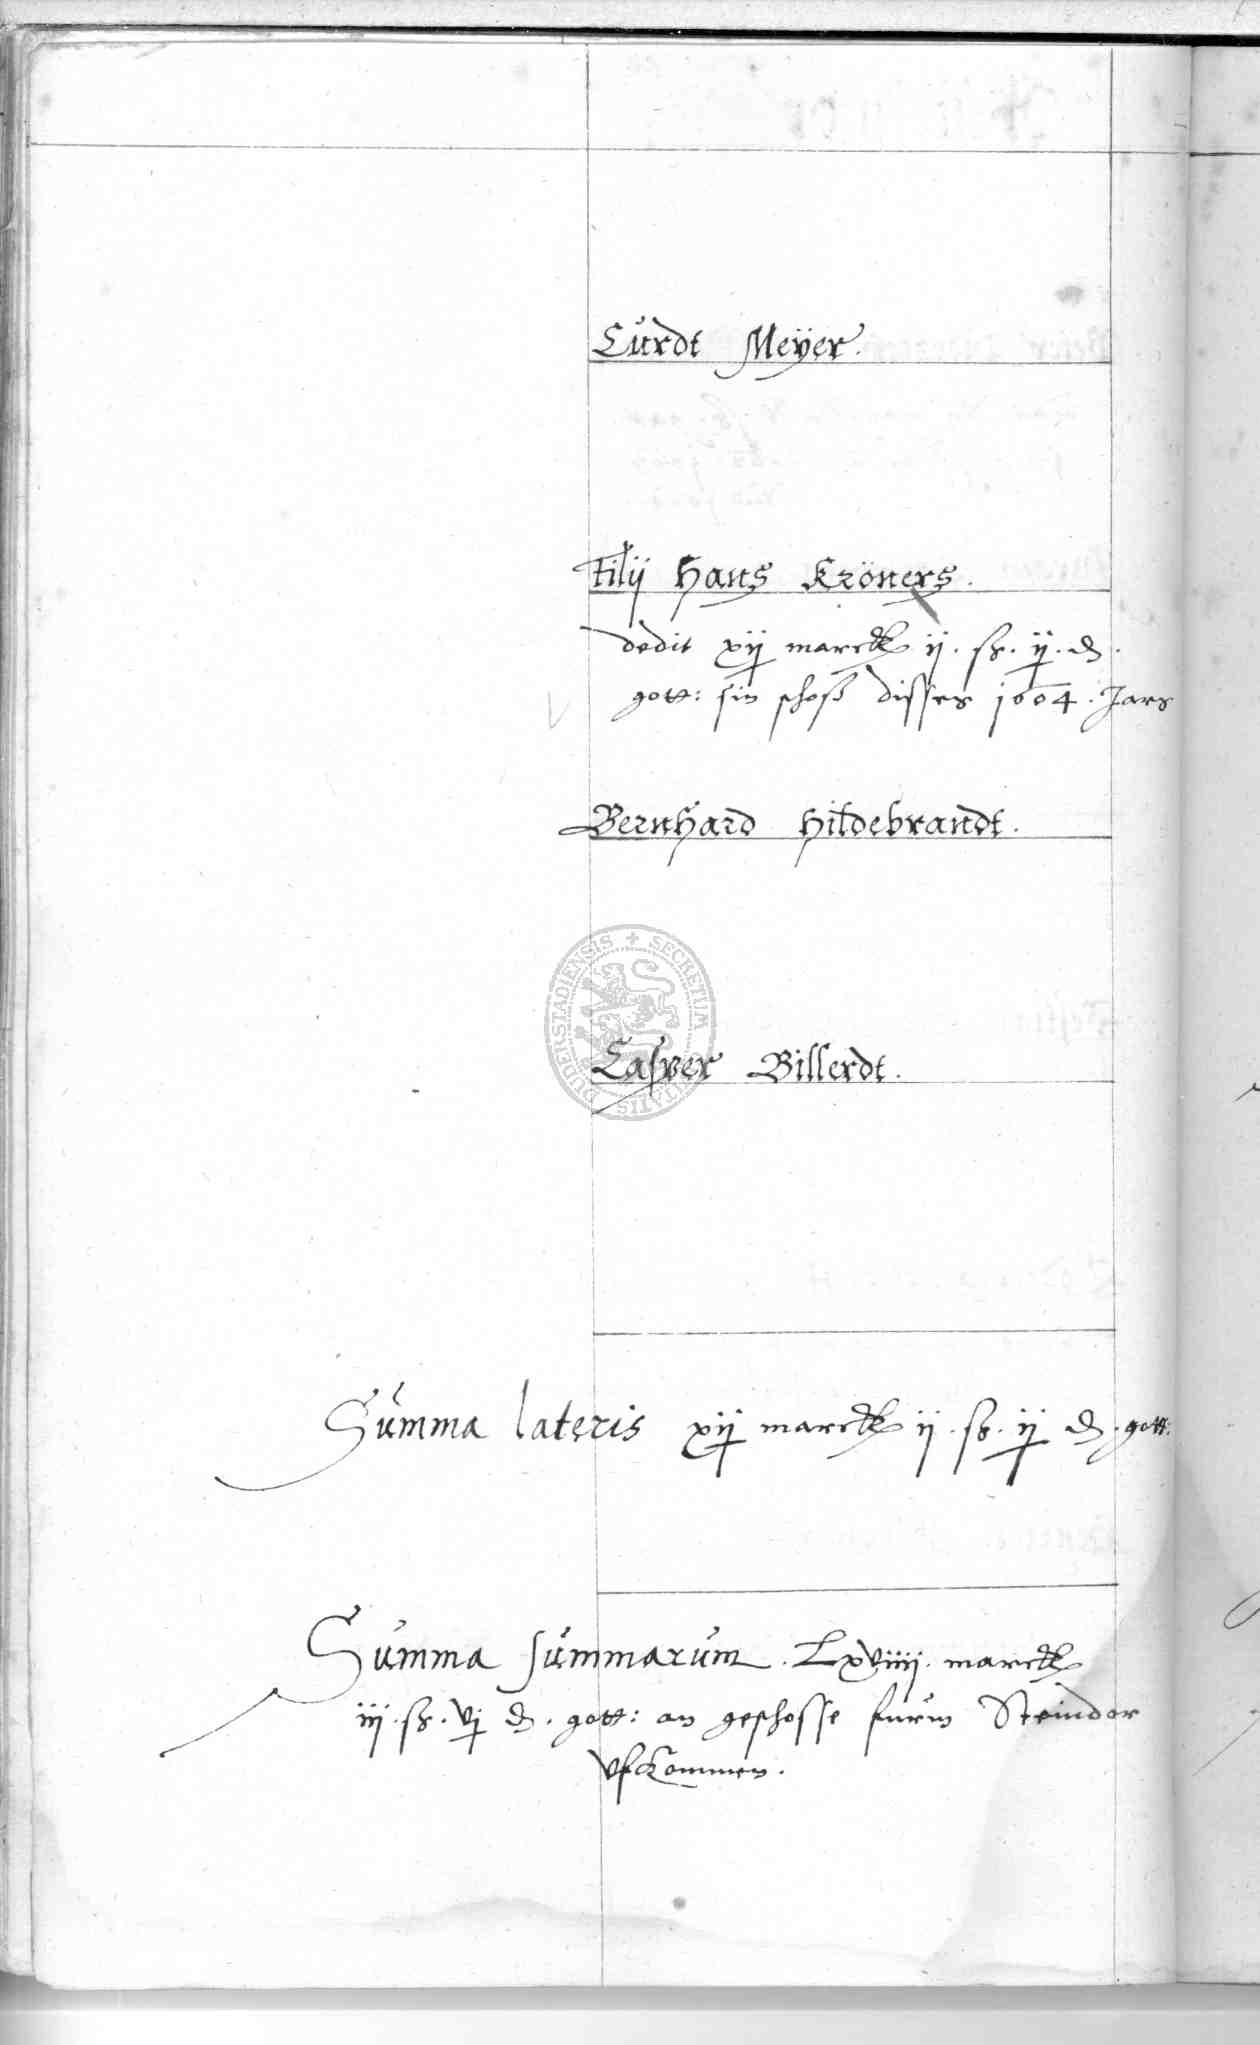 Curdt Meÿer.
Filij Hans Kröners.
dedit xij marck ij. ß. ij. d.
gott: sin schoß disses 1604. Jars
Bernhard Hildebrandt.
SECRETUM CIVITATIS DUDERSTADIENSIS
Casper Billerdt.
Summa lateris xij marck ij. ß. ij d. gott:
Summa summarum. Lxviiij. marck
iij. ß. vj d. gott: an geschosse furm Steindor
vfkommen.